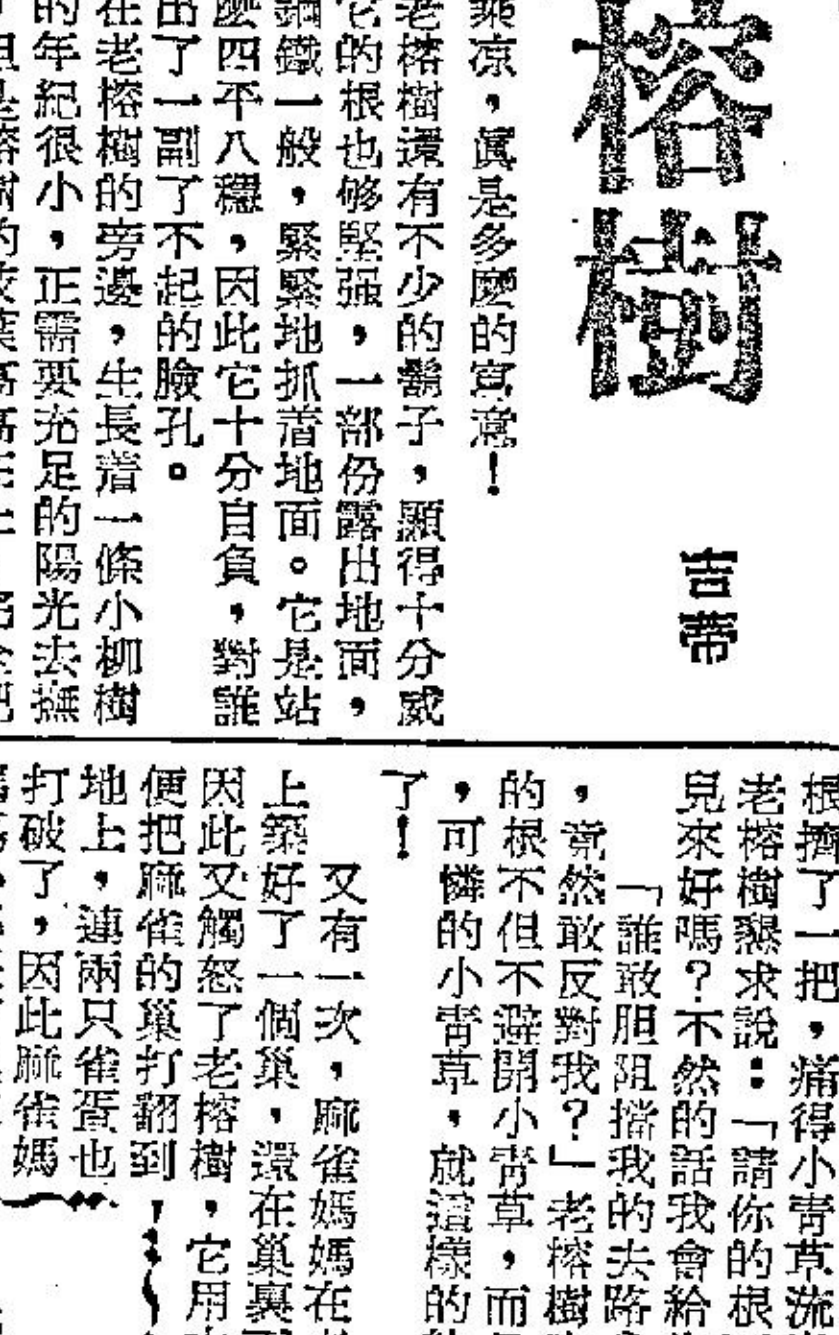 榕樹
吉蒂
乘凉，眞是多麼的寫意！
老榕樹還有不少的鬚子，顯得十分威
它的根也够堅强，一部份露出地面，
鋼鐵一般，緊緊地抓着地面。它是站
麼四平八穩，因此它十分自負，對誰
出了一副了不起的臉孔。
在老榕樹的旁邊，生長着一條小柳樹
的年紀很小，正需要充足的陽光去撫
但是榕樹的枝葉高高在上
根擠了一把，痛得小青草流
老榕樹懇求說：「請你的根
兒來好嗎？不然的話我會給
「誰敢胆阻擋我的去路
，竟然敢反對我？」老榕樹
的根不但不避開小青草，而
，可憐的小青草，就這樣的
了！
又有一次，麻雀媽媽在
上築好了一個巢，還在巢裏
因此又觸怒了老榕樹，它用
便把麻雀的巢打翻到
地上，連兩只雀蛋也
打破了，因此麻雀媽